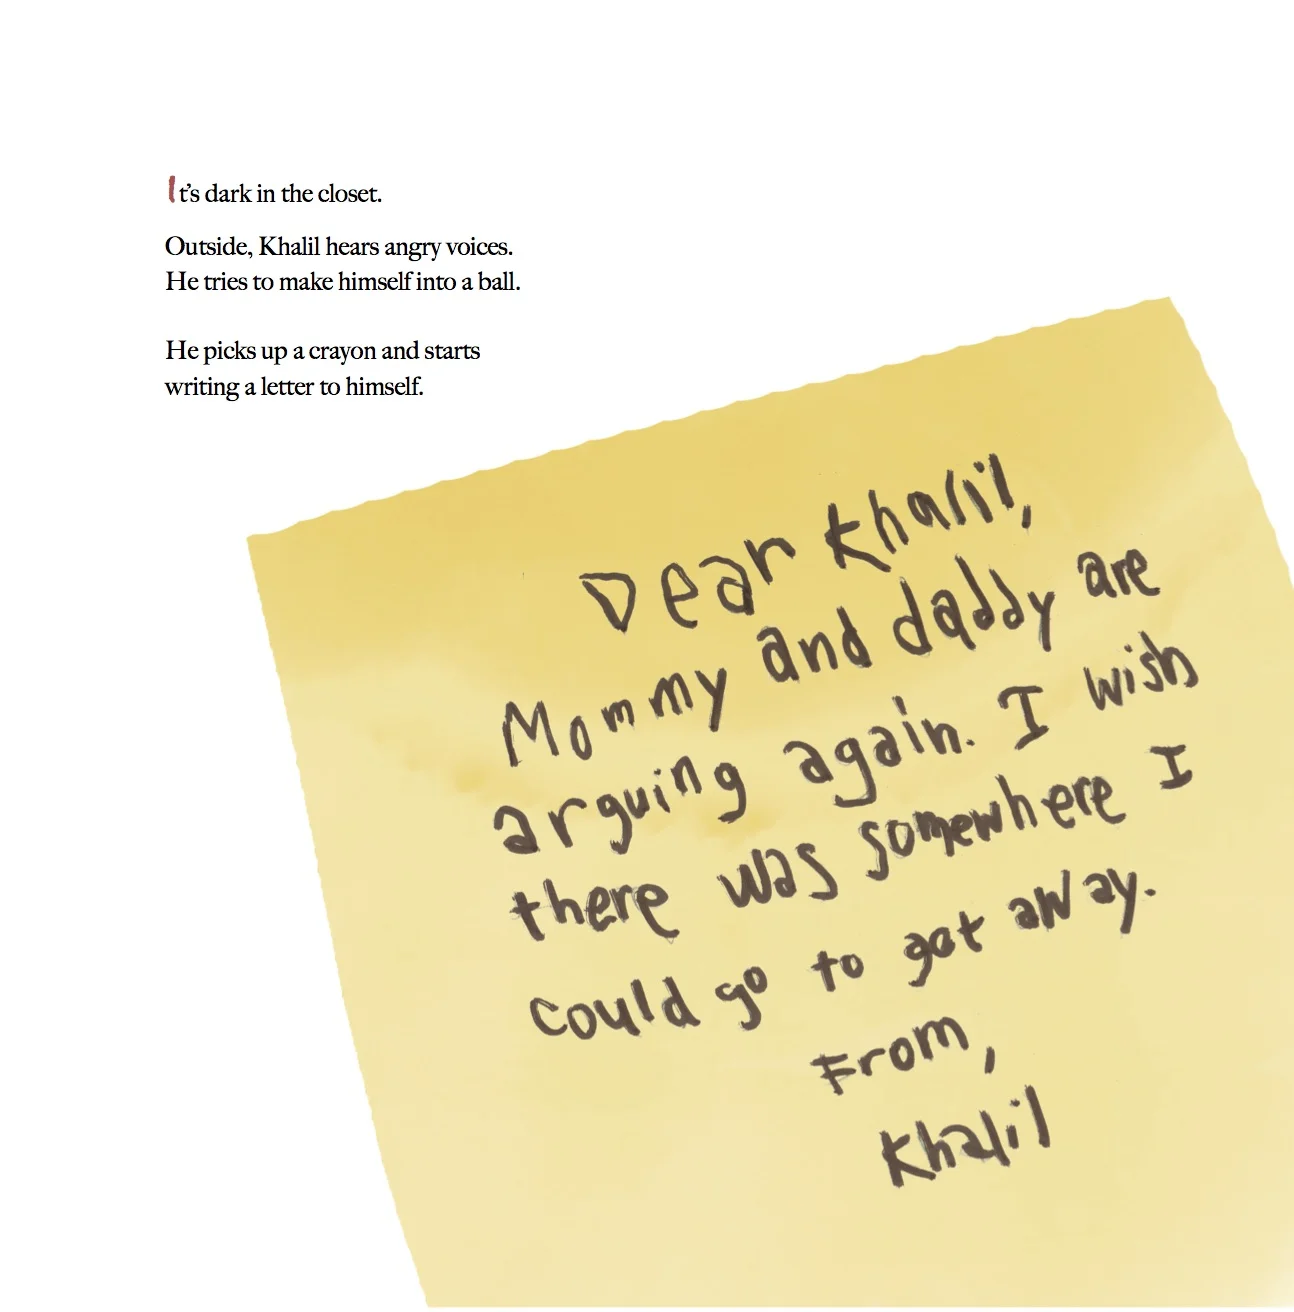 It's dark in the closet.
Outside, Khalil hears angry voices.
He tries to make himself into a ball.
He picks up a crayon and starts
writing a letter to himself.
Dear Khalil,
Mommy and daddy are
arguing again. I wish
there was somewhere I
could go to get away.
From,
Khalil